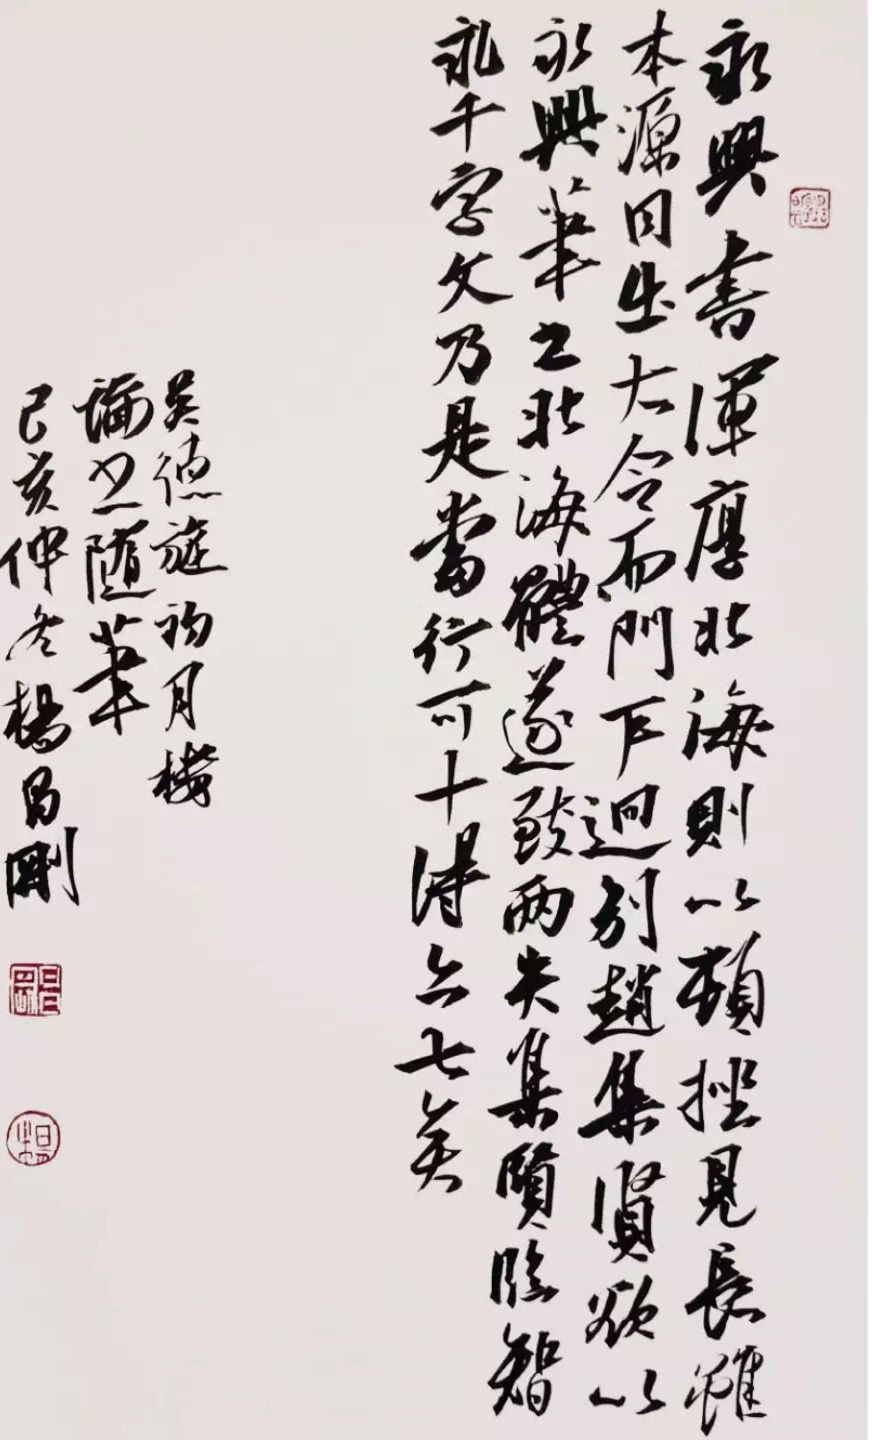 永興書渾厚北海則以頓挫見長雖
本源同出大令而門下迥別趙集賢欲以
永興筆書北海體遂致兩失集賢臨智
永千字文乃是當行可十得六七矣
吳德旋初月樓
論書隨筆
己亥仲冬楊昌剛